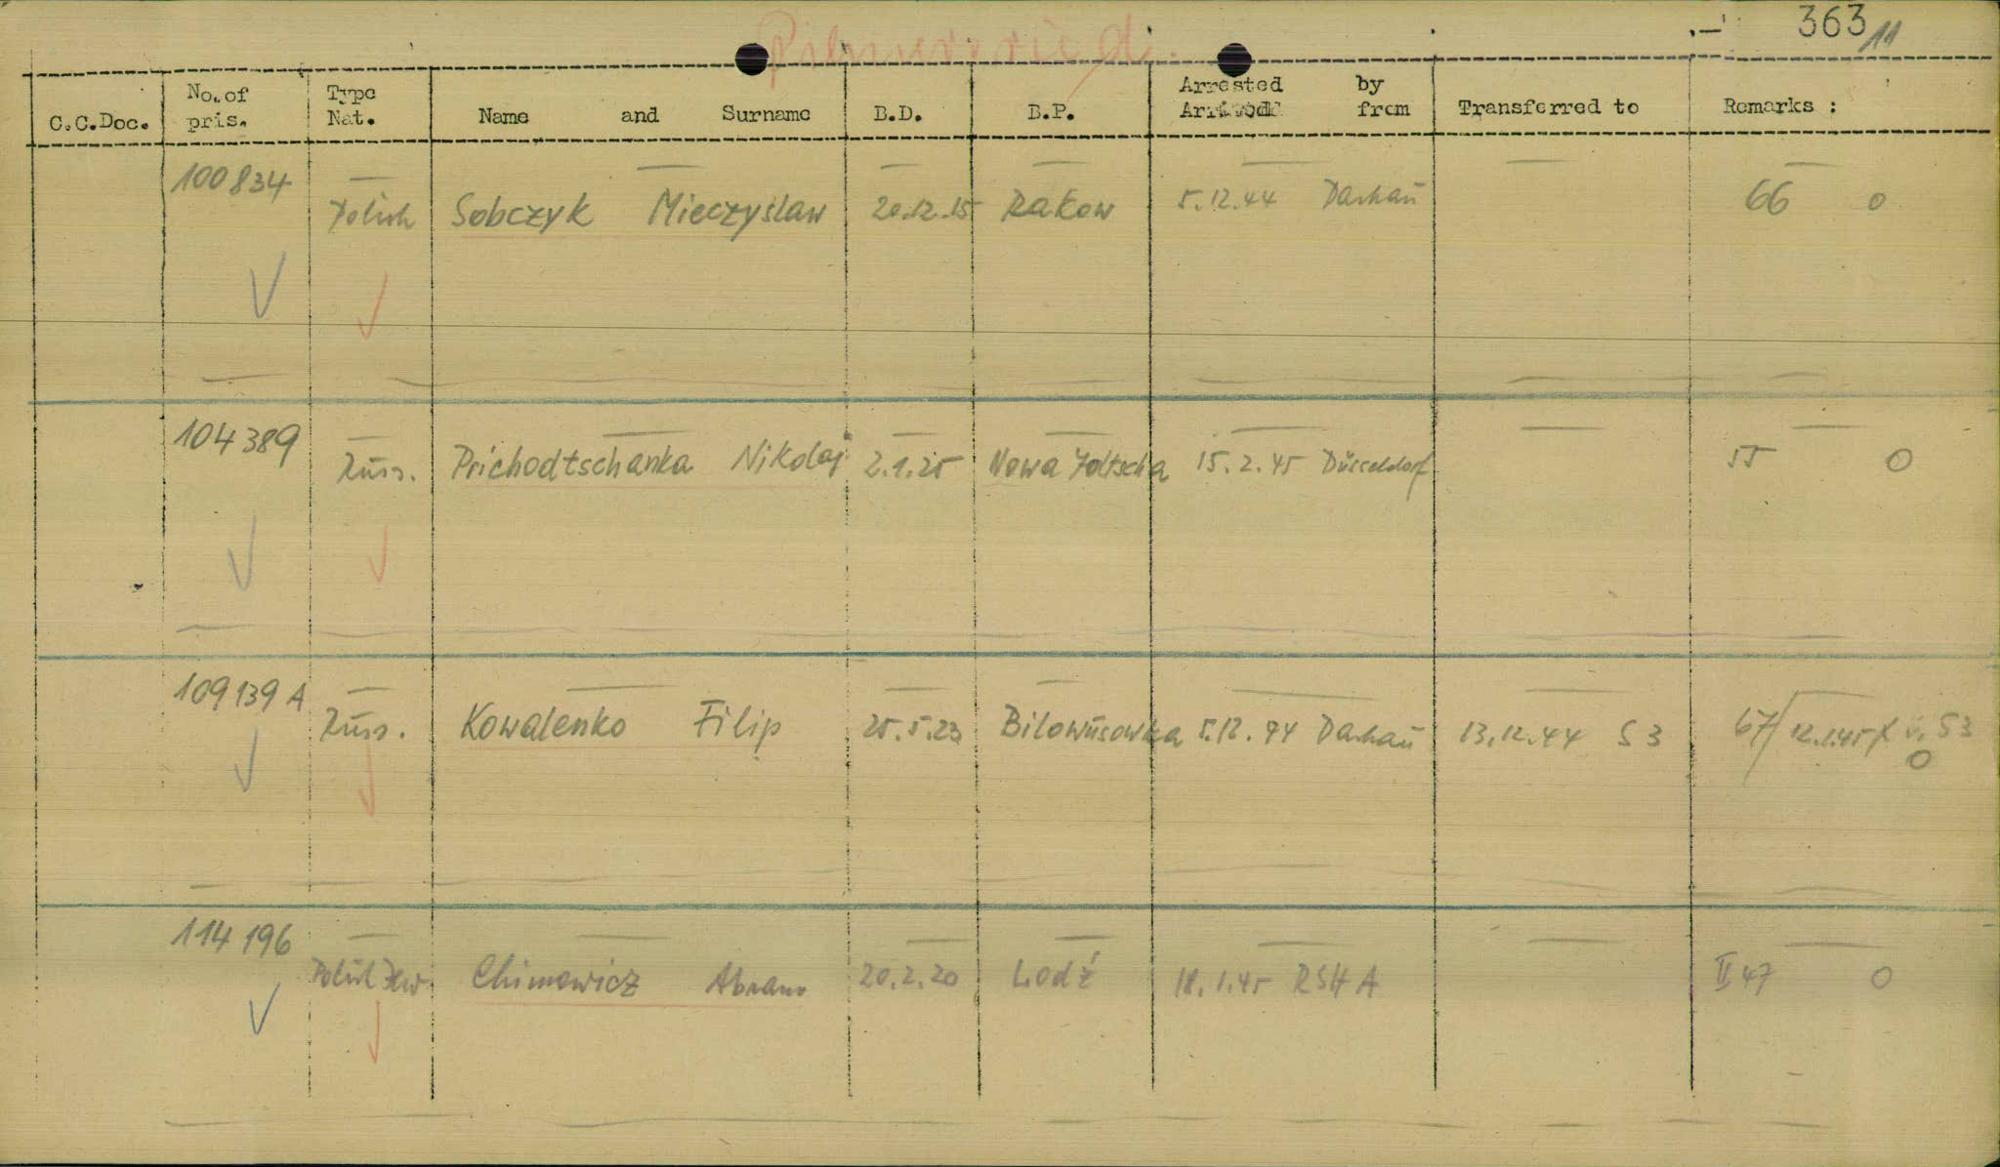 363 11
C.C.Doc. No. of pris. Type Nat. Name and Surname B.D. B.P. Arrested by from Transferred to Remarks :
100834 Polish Sobczyk Mieczyslaw 20.12.15 Rakow 5.12.44 Dachau 66 0
104389 Russ. Prichodtschanka Nikolaj 2.1.25 Nowa 15.2.45 Düsseldorf 55 0
109139 A Russ. Kowalenko Filip 25.5.23 Bilowusowka 5.12.44 Dachau 13.12.44 S3 67/12.1.45 X v. S3
0
114196 Polish Jew. Chimowicz Abram 20.2.20 Lodź 18.1.45 RSHA II 47 0